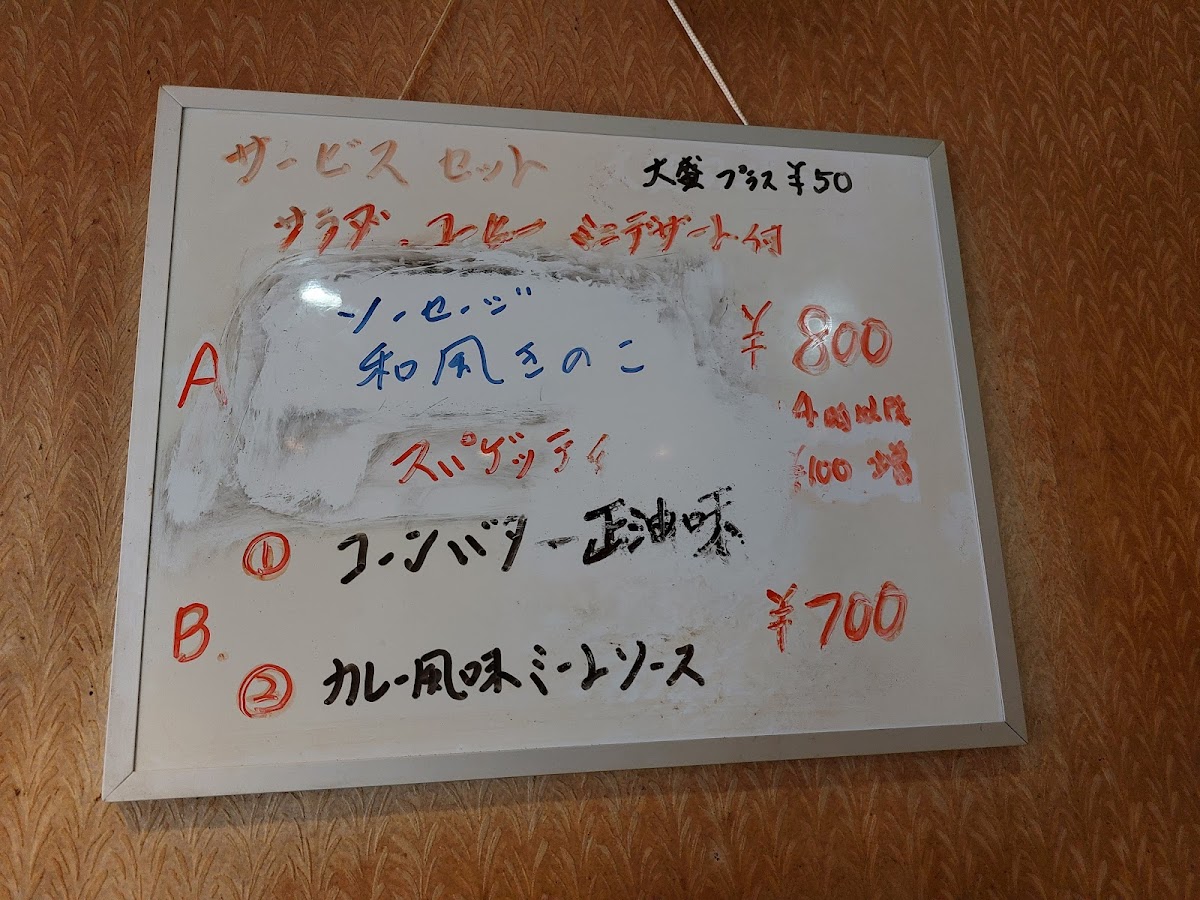 サービス セット
大盛 プラス ¥50
サラダ.コーヒー ミニデザート付
A
ソーセージ
和風きのこ
スパゲッティ
¥800
4時以降
¥100増
B.
① コーンバター正油味
② カレー風味ミートソース
¥700